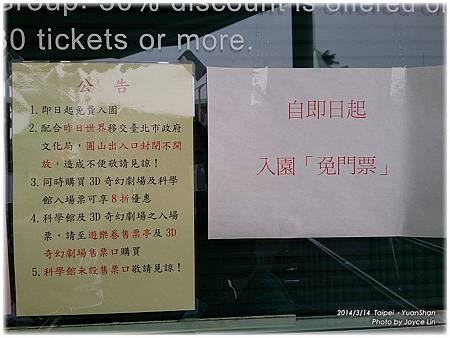 Group: 30% discount is offered of
30 tickets or more.
公告
1. 即日起免費入園
2. 配合昨日世界移交臺北市政府
文化局，圓山出入口封閉不開
放，造成不便敬請見諒！
3. 同時購買 3D 奇幻劇場及科學
館入場票可享 8 折優惠
4. 科學館及 3D 奇幻劇場之入場
票，請至遊樂卷售票亭及 3D
奇幻劇場售票口購買
5. 科學館未設售票口敬請見諒！
自即日起
入園「免門票」
2014/3/14 Taipei - YuanShan
Photo by Joyce Lin